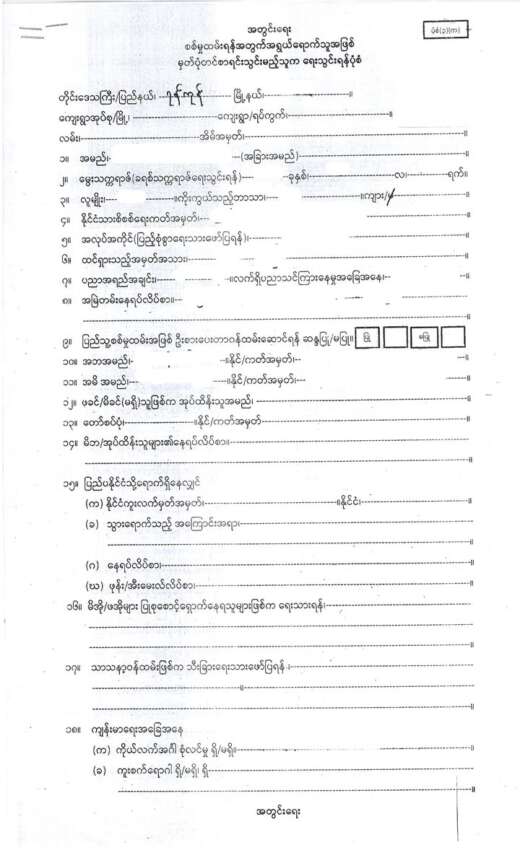 အတွင်းရေး
စစ်မှုထမ်းရန်အတွက်အရွယ်ရောက်သူအဖြစ်
မှတ်ပုံတင်စာရင်းသွင်းမည့်သူက ရေးသွင်းရန်ပုံစံ
ပုံစံ(၃)(က)
တိုင်းဒေသကြီး/ပြည်နယ်၊ ရန်ကုန် မြို့နယ်၊ ။
ကျေးရွာအုပ်စု/မြို့၊ ကျေးရွာ/ရပ်ကွက်၊ ။
လမ်း၊ အိမ်အမှတ်၊ ။
၁။ အမည်၊ (အခြားအမည်) ။
၂။ မွေးသက္ကရာဇ်(ခရစ်သက္ကရာဇ်ရေးသွင်းရန်) ခုနှစ်၊ လ၊ ရက်။
၃။ လူမျိုး၊ ။ကိုးကွယ်သည့်ဘာသာ၊ ။ကျား/မ
၄။ နိုင်ငံသားစိစစ်ရေးကတ်အမှတ်၊ ။
၅။ အလုပ်အကိုင်(ပြည့်စုံစွာရေးသားဖော်ပြရန်)၊ ။
၆။ ထင်ရှားသည့်အမှတ်အသား၊ ။
၇။ ပညာအရည်အချင်း၊ ။လက်ရှိပညာသင်ကြားနေမှုအခြေအနေ၊ ။
၈။ အမြဲတမ်းနေရပ်လိပ်စာ၊ ။
၉။ ပြည်သူ့စစ်မှုထမ်းအဖြစ် ဦးစားပေးတာဝန်ထမ်းဆောင်ရန် ဆန္ဒပြု/မပြု။ ပြု မပြု ။
၁၀။ အဘအမည်၊ ။နိုင်/ကတ်အမှတ်၊ ။
၁၁။ အမိ အမည်၊ ။နိုင်/ကတ်အမှတ်၊ ။
၁၂။ ဖခင်/မိခင်(မရှိ)သူဖြစ်က အုပ်ထိန်းသူအမည်၊ ။
၁၃။ တော်စပ်ပုံ၊ ။နိုင်/ကတ်အမှတ် ။
၁၄။ မိဘ/အုပ်ထိန်းသူများ၏နေရပ်လိပ်စာ။ ။
၁၅။ ပြည်ပနိုင်ငံသို့ရောက်ရှိနေလျှင်
(က) နိုင်ငံကူးလက်မှတ်အမှတ်၊ ။နိုင်ငံ၊ ။
(ခ) သွားရောက်သည့် အကြောင်းအရာ၊ ။
(ဂ) နေရပ်လိပ်စာ၊ ။
(ဃ) ဖုန်း/အီးမေးလ်လိပ်စာ၊ ။
၁၆။ မိအို/ဖအိုများ ပြုစုစောင့်ရှောက်နေရသူများဖြစ်က ရေးသားရန်၊ ။
၁၇။ သာသနာ့ဝန်ထမ်းဖြစ်က သီးခြားရေးသားဖော်ပြရန် ၊ ။
၁၈။ ကျန်းမာရေးအခြေအနေ
(က) ကိုယ်လက်အင်္ဂါ စုံလင်မှု ရှိ/မရှိ။ ။
(ခ) ကူးစက်ရောဂါ ရှိ/မရှိ၊ ရှိ ။
အတွင်းရေး